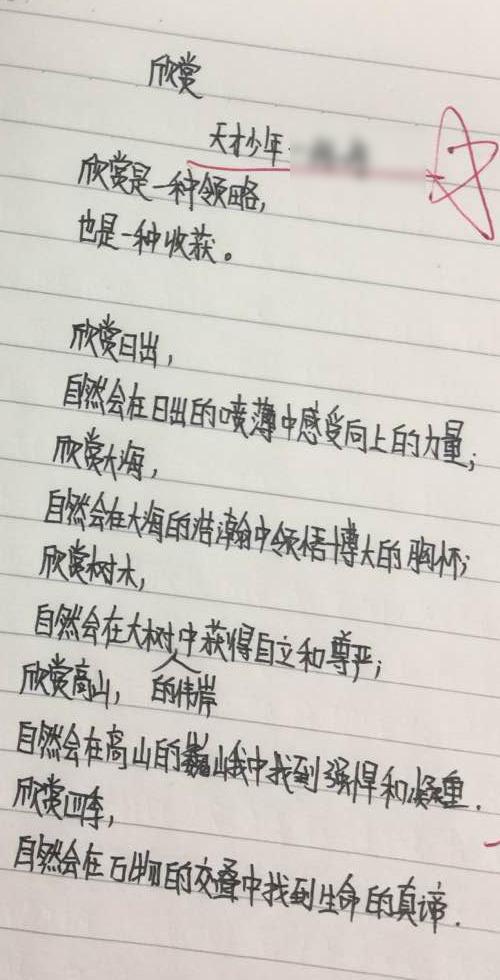 欣赏
天才少年
欣赏是一种领略，
也是一种收获。
欣赏日出，
自然会在日出的喷薄中感受向上的力量；
欣赏大海，
自然会在大海的浩瀚中领悟博大的胸怀；
欣赏树木，
自然会在大树的伟岸中获得自立和尊严；
欣赏高山，
自然会在高山的巍峨中找到强悍和凝重.
欣赏四季，
自然会在万物的交叠中找到生命的真谛.